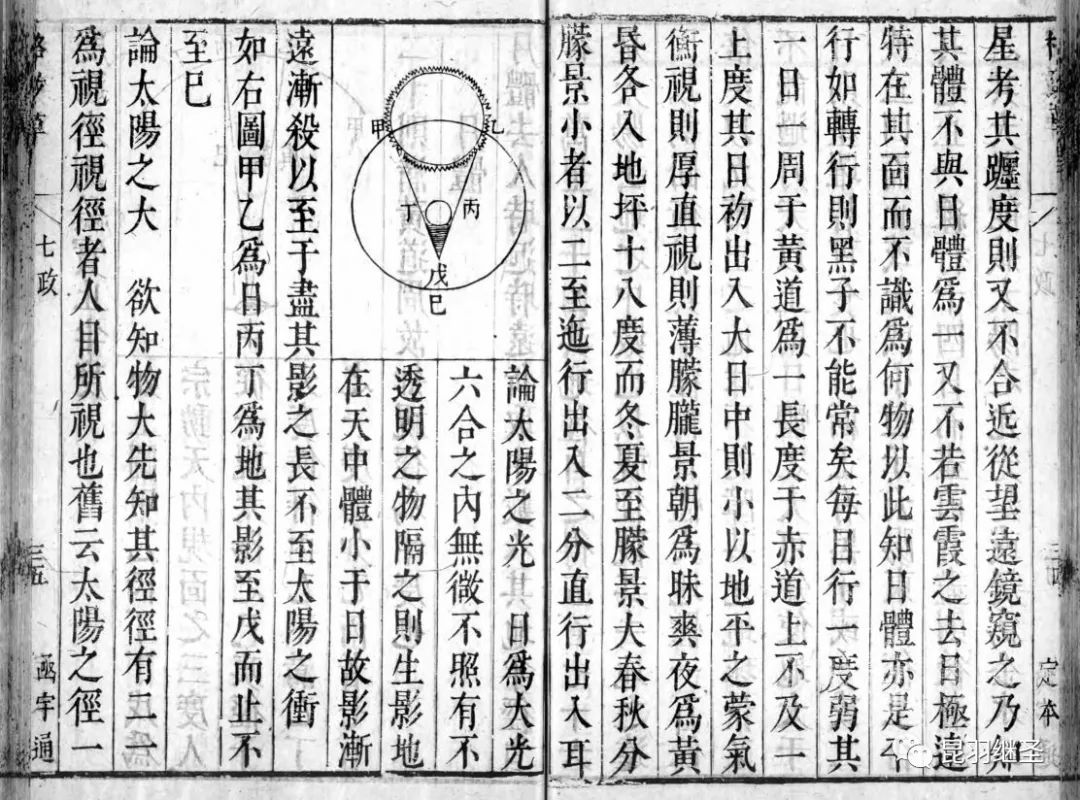 星考其躔度則又不合近從望遠鏡窺之乃知
其體不與日體為一又不若雲霞之去日極遠
特在其面而不識為何物以此知日體亦是平
行如轉行則黑子不能常矣每日行一度弱其
一日一周于黃道為一長度于赤道上不及一
上度其日初出入大日中則小以地平之蒙氣
衡視則厚直視則薄朦朧景朝為昧爽夜為黃
昏各入地坪十八度而冬夏至朦景大春秋分
朦景小者以二至迤行出入二分直行出入耳
論太陽之光 日為大光
六合之內無微不照有不
透明之物隔之則生影地
在天中體小于日故影漸
甲
乙
丙
丁
戊
巳
遠漸殺以至于盡其影之長不至太陽之衝
如右圖甲乙為日丙丁為地其影至戊而止不
至巳
論太陽之大 欲知物大先知其徑徑有二一
為視徑視徑者人目所視也舊云太陽之徑一
七政
三五
函宇通
定本
昆羽继圣